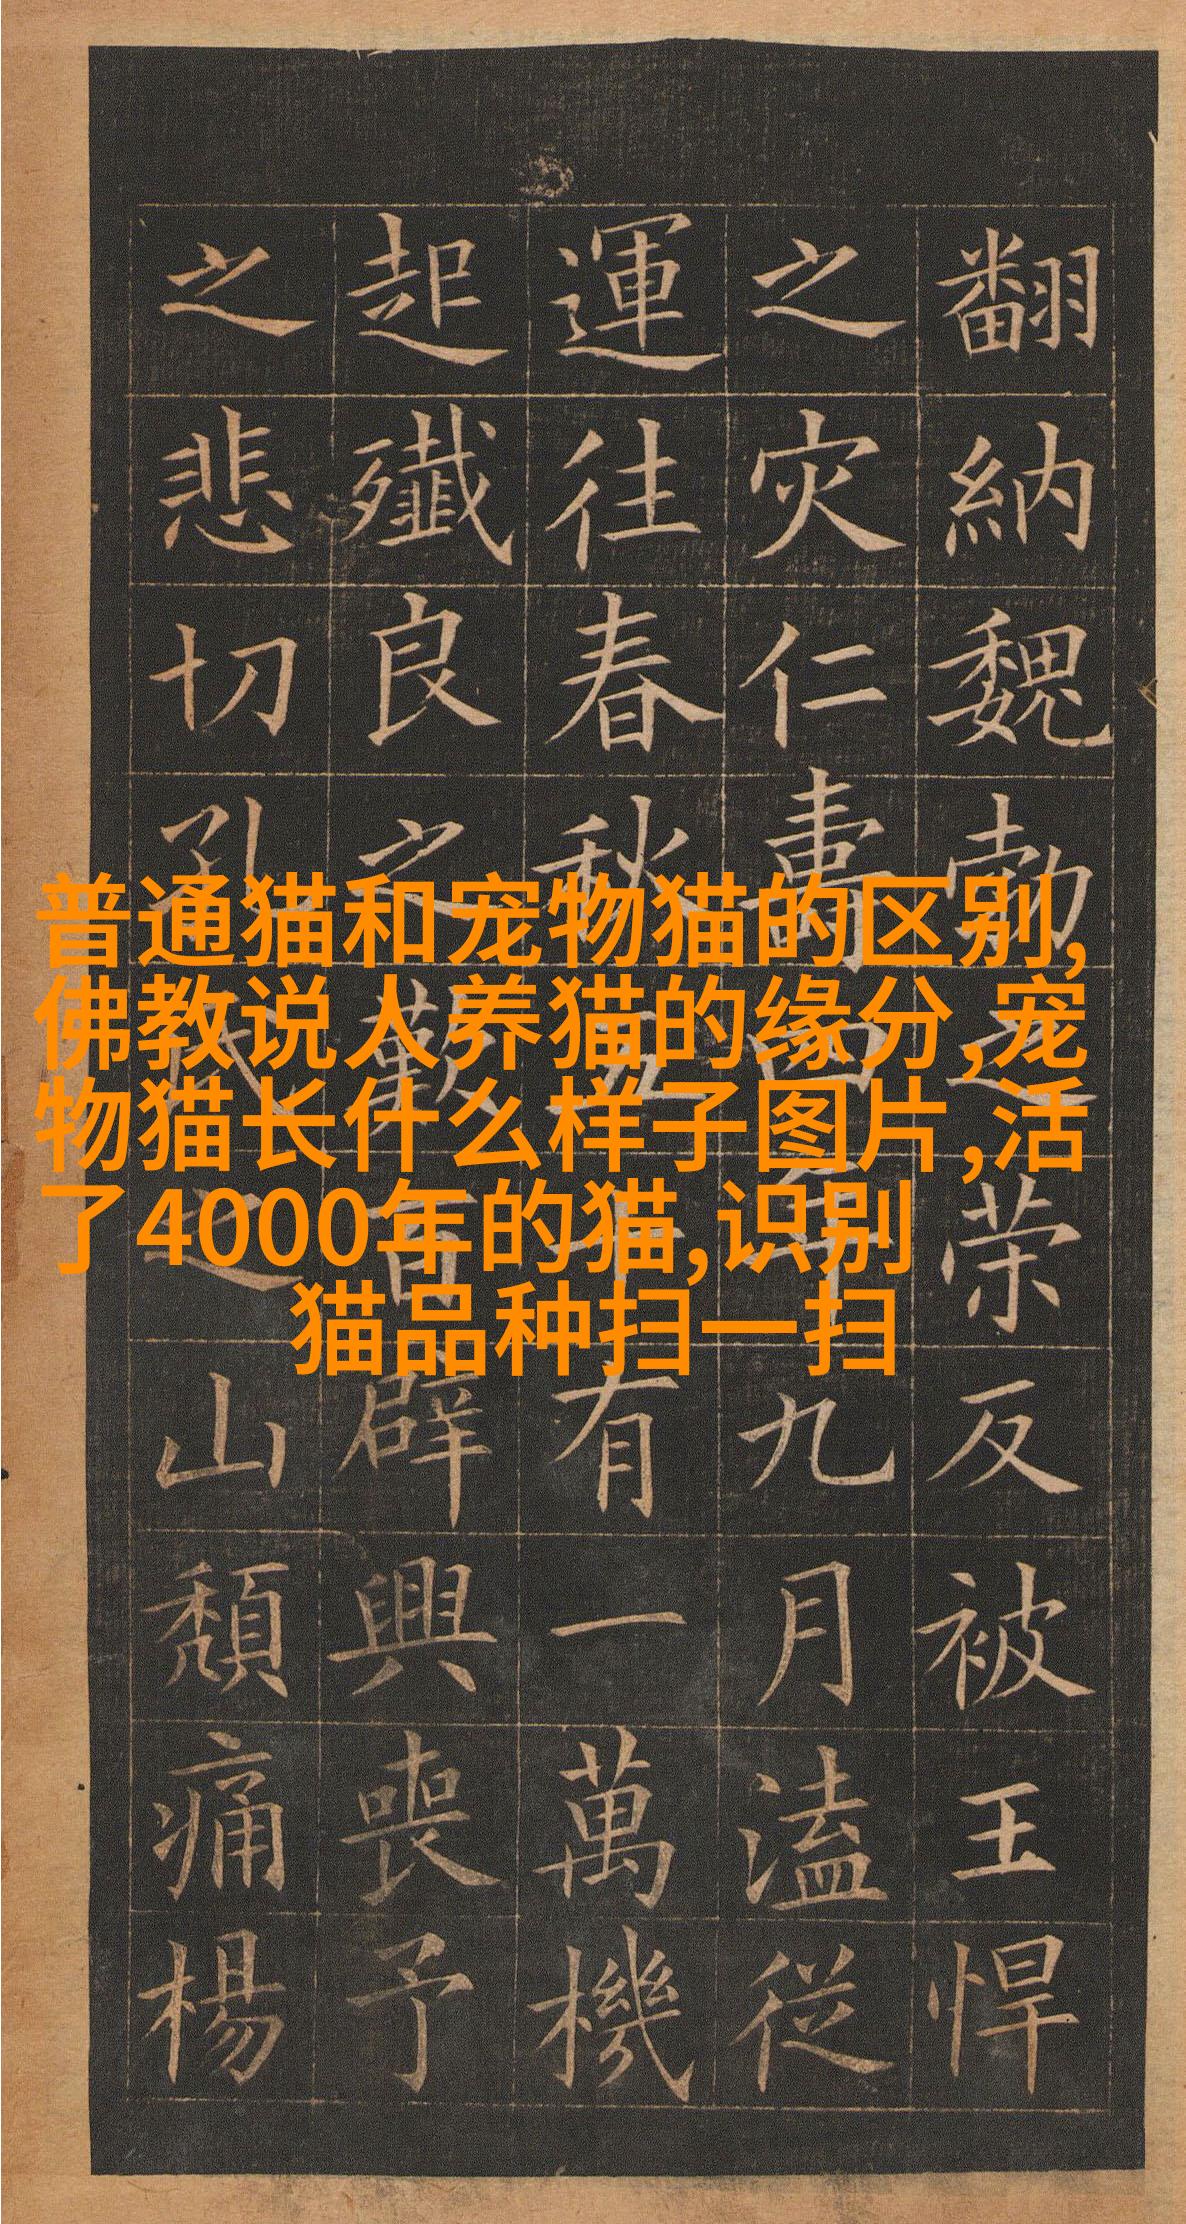 普通猫和宠物猫的区别,
佛教说人养猫的缘分,宠
物猫长什么样子图片,活
了4000年的猫,识别
猫品种扫一扫
翻納魏勃之荣反被王悍
之灾仁壽四年九月溘從
運往春秋五十有一萬機
起殲良之歎百辟興喪予
之悲切孔氏之山頹痛楊